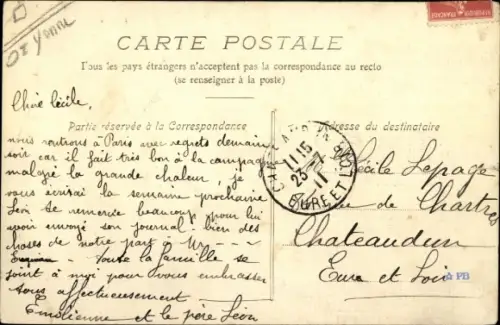 Oise Yonne
CARTE POSTALE
Tous les pays étrangers n'acceptent pas la correspondance au recto
(se renseigner à la poste)
Partie réservée à la Correspondance
Adresse du destinataire
Chère Cécile,
nous rentrons à Paris avec regrets demain
soir car il fait très bon à la campagne
malgré la grande chaleur, je
vous écrirai la semaine prochaine
Léon te remercie beaucoup pour lui
avoir envoyé son journal. bien des
choses de notre part à Mr
Toute la famille se
joint à moi pour vous embrasser
tous affectueusement
Emilienne et le père Léon
11 15
23 - 7
11
EURE ET LOIR
Cécile Lepage
de Chartres
Chateaudun
Eure et Loir
PB